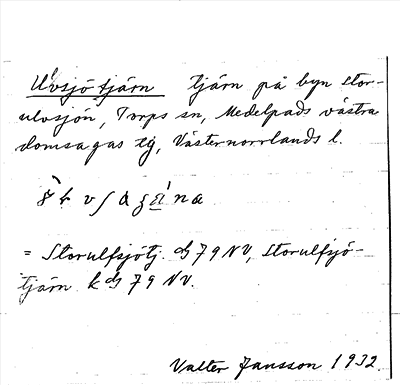 Ulvsjötjärn tjärn på byn Stor-
ulvsjön, Torps sn, Medelpads västra
domsagas tg, Västernorrlands l.
= Storulfsjötj. 79 NV, Storulfsjö-
tjärn k 79 NV.
Valter Jansson 1932.